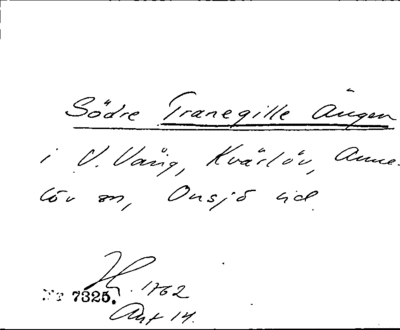 Södre Tranegille Ängen
i V. Vång, Kvärlöv, Anne-
löv sn, Onsjö hd.
1762
Nr 7325.
Akt 14.